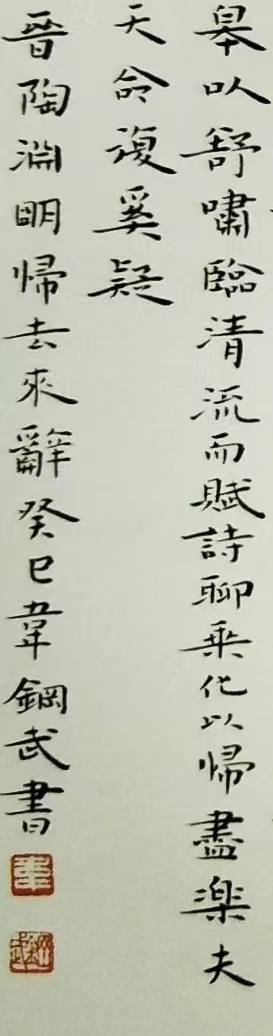 皋以舒嘯臨清流而賦詩聊乘化以歸盡樂夫
天命復奚疑
晉陶淵明歸去來辭癸巳韋鋼武書